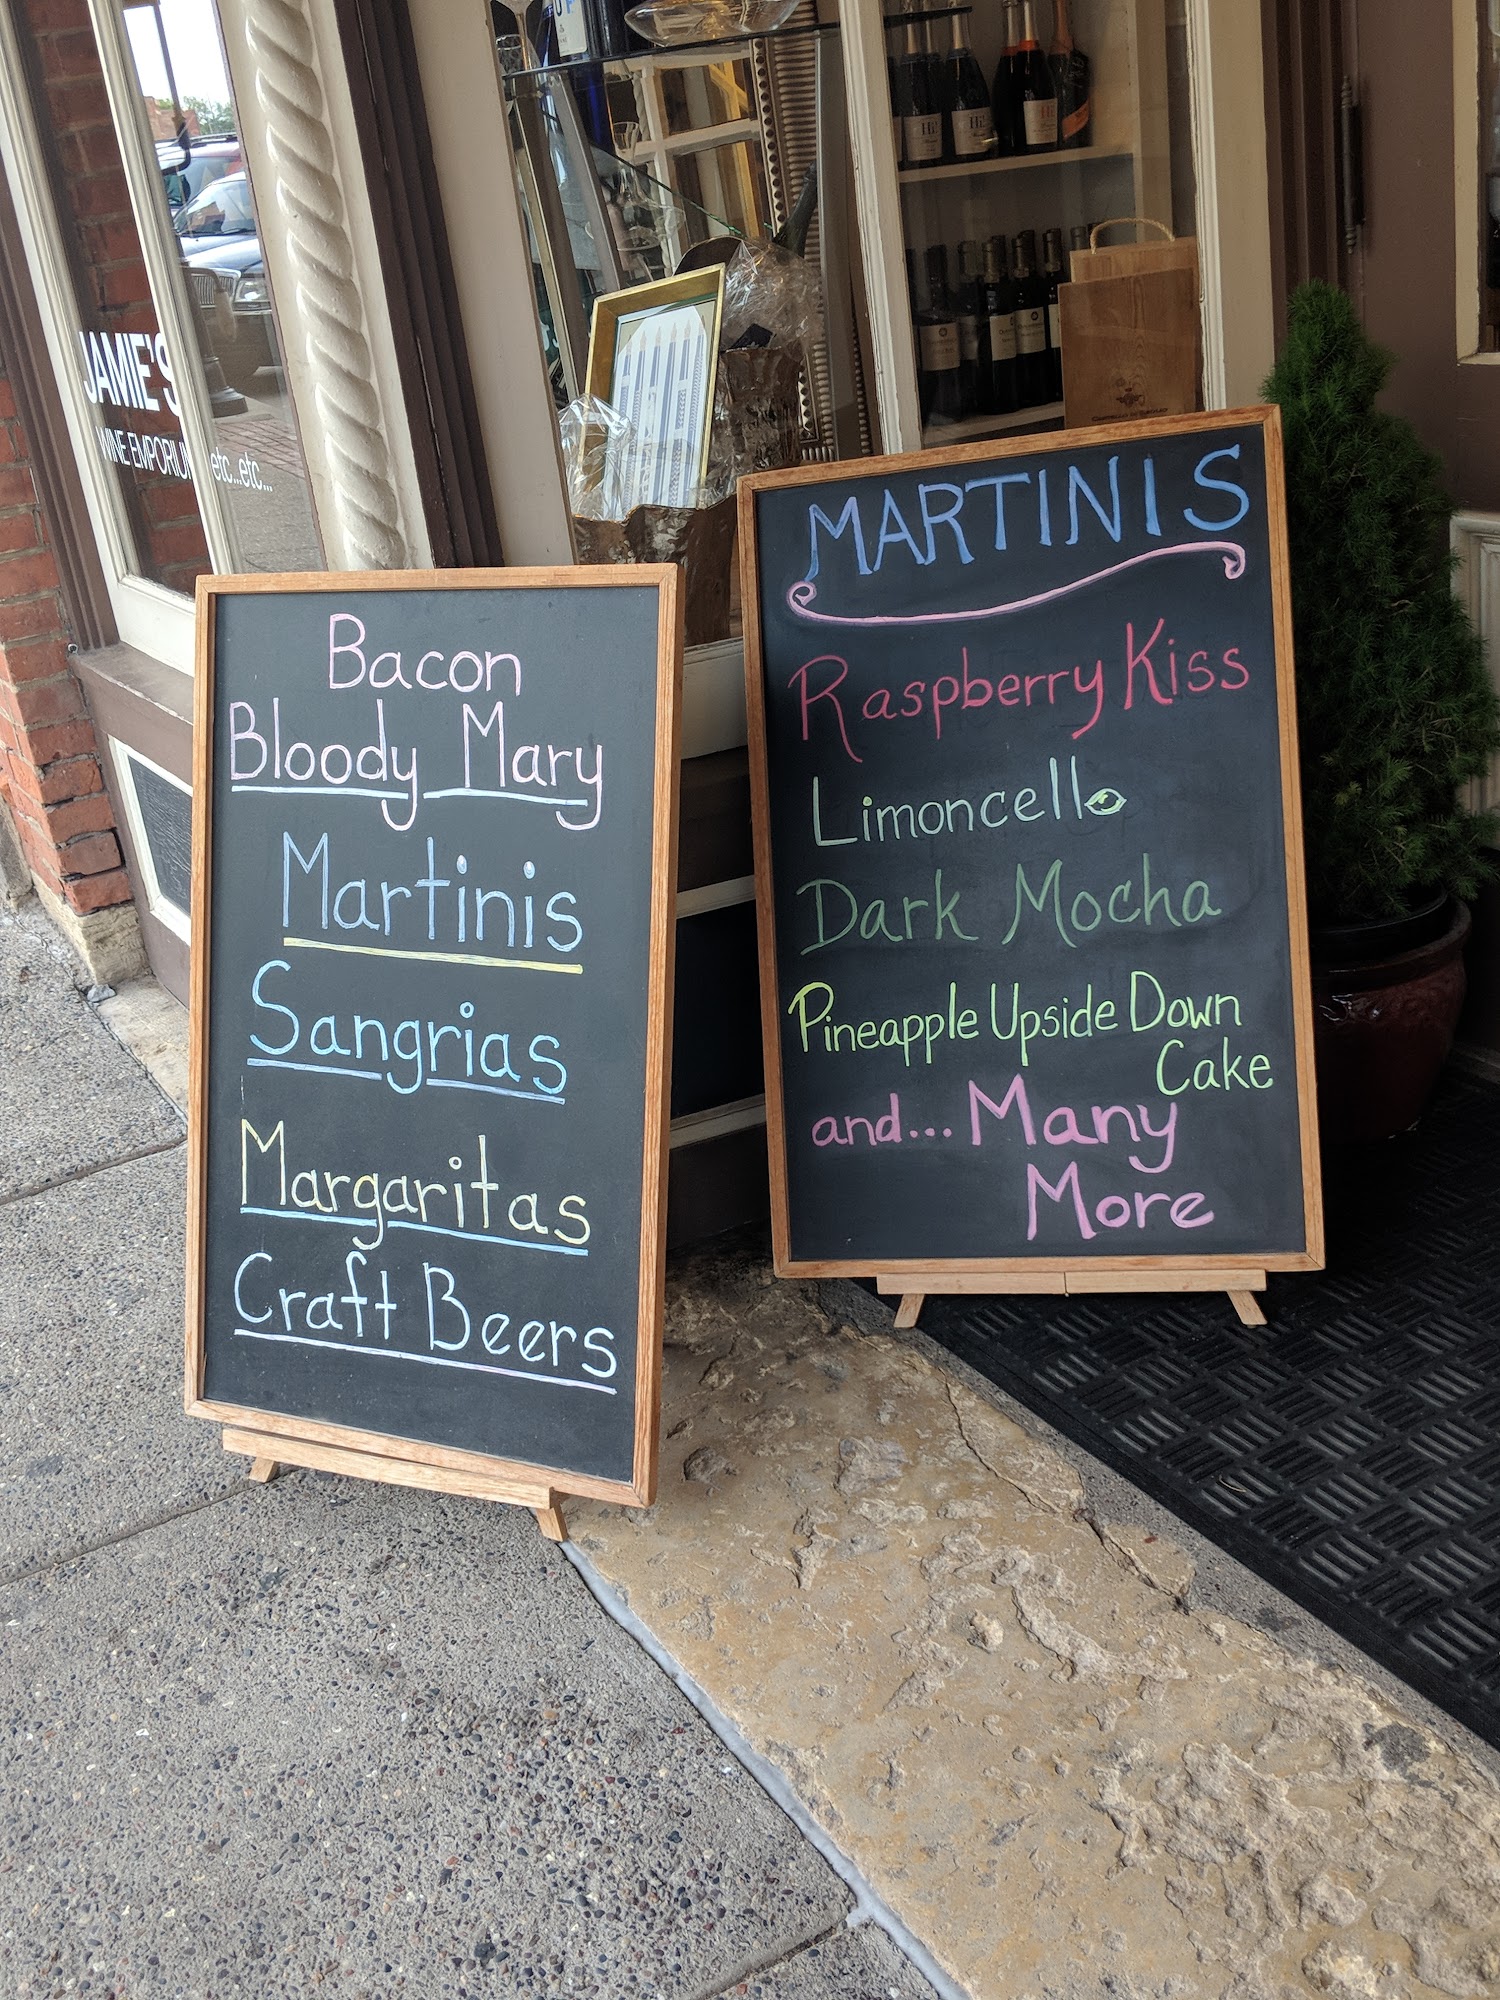 JAMIE'S
WINE EMPORIUM etc...etc...
Bacon
Bloody Mary
Martinis
Sangrias
Margaritas
Craft Beers
MARTINIS
Raspberry Kiss
Limoncello
Dark Mocha
Pineapple Upside Down
Cake
and... Many
More
Hi!
Hi!
Hi!